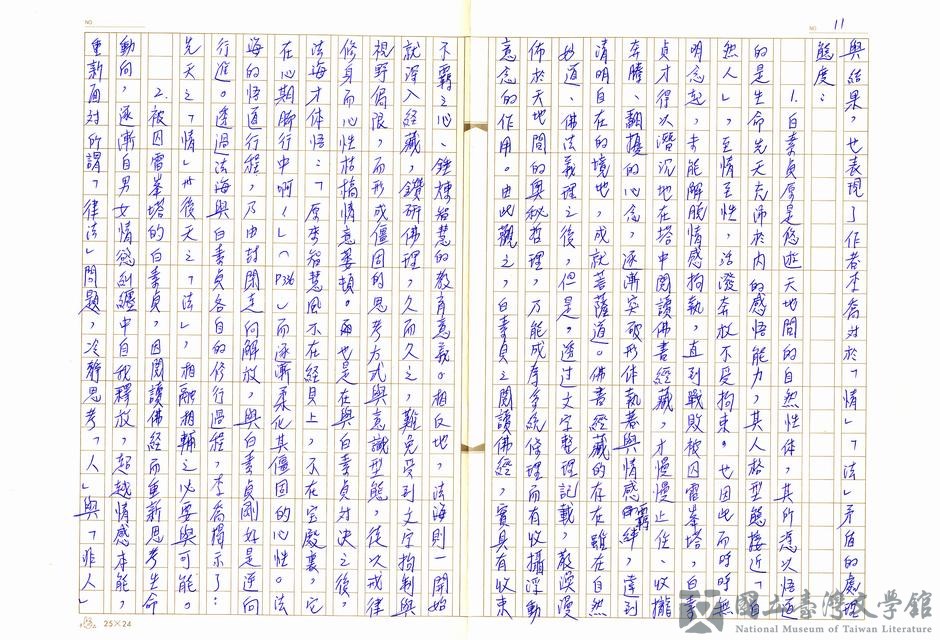 11
NO
NO
與結果,也表現了作者李喬對於「情」「法」矛盾的處理
態度:
1.白素貞原是悠遊天地間的自然性体,其所憑以悟道
的是生命先天充沛於內的感悟能力,其人格型態接近「自
然人」,至情至性,活潑奔放不受拘束。也因此而時時無
明念起,未能解脫情感拘執,直到戰敗被囚雷峯塔,白素
貞才得以潛沉地在塔中閱讀佛書經藏,才慢慢止住、收攏
奔騰、翻擾的心念,逐漸突破形体執著與情感羈絆,達到
清明自在的境地,成就菩薩道。佛書經藏的存在雖在自然
妙道、佛法義理之後,但是,透过文字整理記載,散漫漫
佈於天地間的奧秘哲理,乃能成為系統條理而有收攝浮動
意念的作用。由此觀之,白素貞之閱讀佛經,實具有收束
不羈之心、錘煉智慧的教育意義。相反地,法海則一開始
就深入經藏,鑽研佛理,久而久之,難免受到文字拘制與
視野侷限,而形成僵固的思考方式與意識型態,徒以戒律
修身而心性枯槁情意萎頓。而也是在與白素貞对決之後,
法海才体悟:「原來智慧風不在經貝上,不在宝殿裏,它
在心期腳行中啊!」(P326)而逐漸柔化其僵固的心性。法
海的悟道行程,乃由封閉走向解放,與白素貞剛好是逆向
行進。透過法海與白素貞各自的修行過程,李喬揭示了:
先天之「情」与後天之「法」,相融相輔之必要與可能。
2.被囚雷峯塔的白素貞,因閱讀佛經而重新思考生命
動向,逐漸自男女情慾糾纏中自我釋放,超越情感本能,
重新面对所謂「律法」問題,冷靜思考「人」與「非人」
25×24
國立臺灣文學館
National Museum of Taiwan Literature